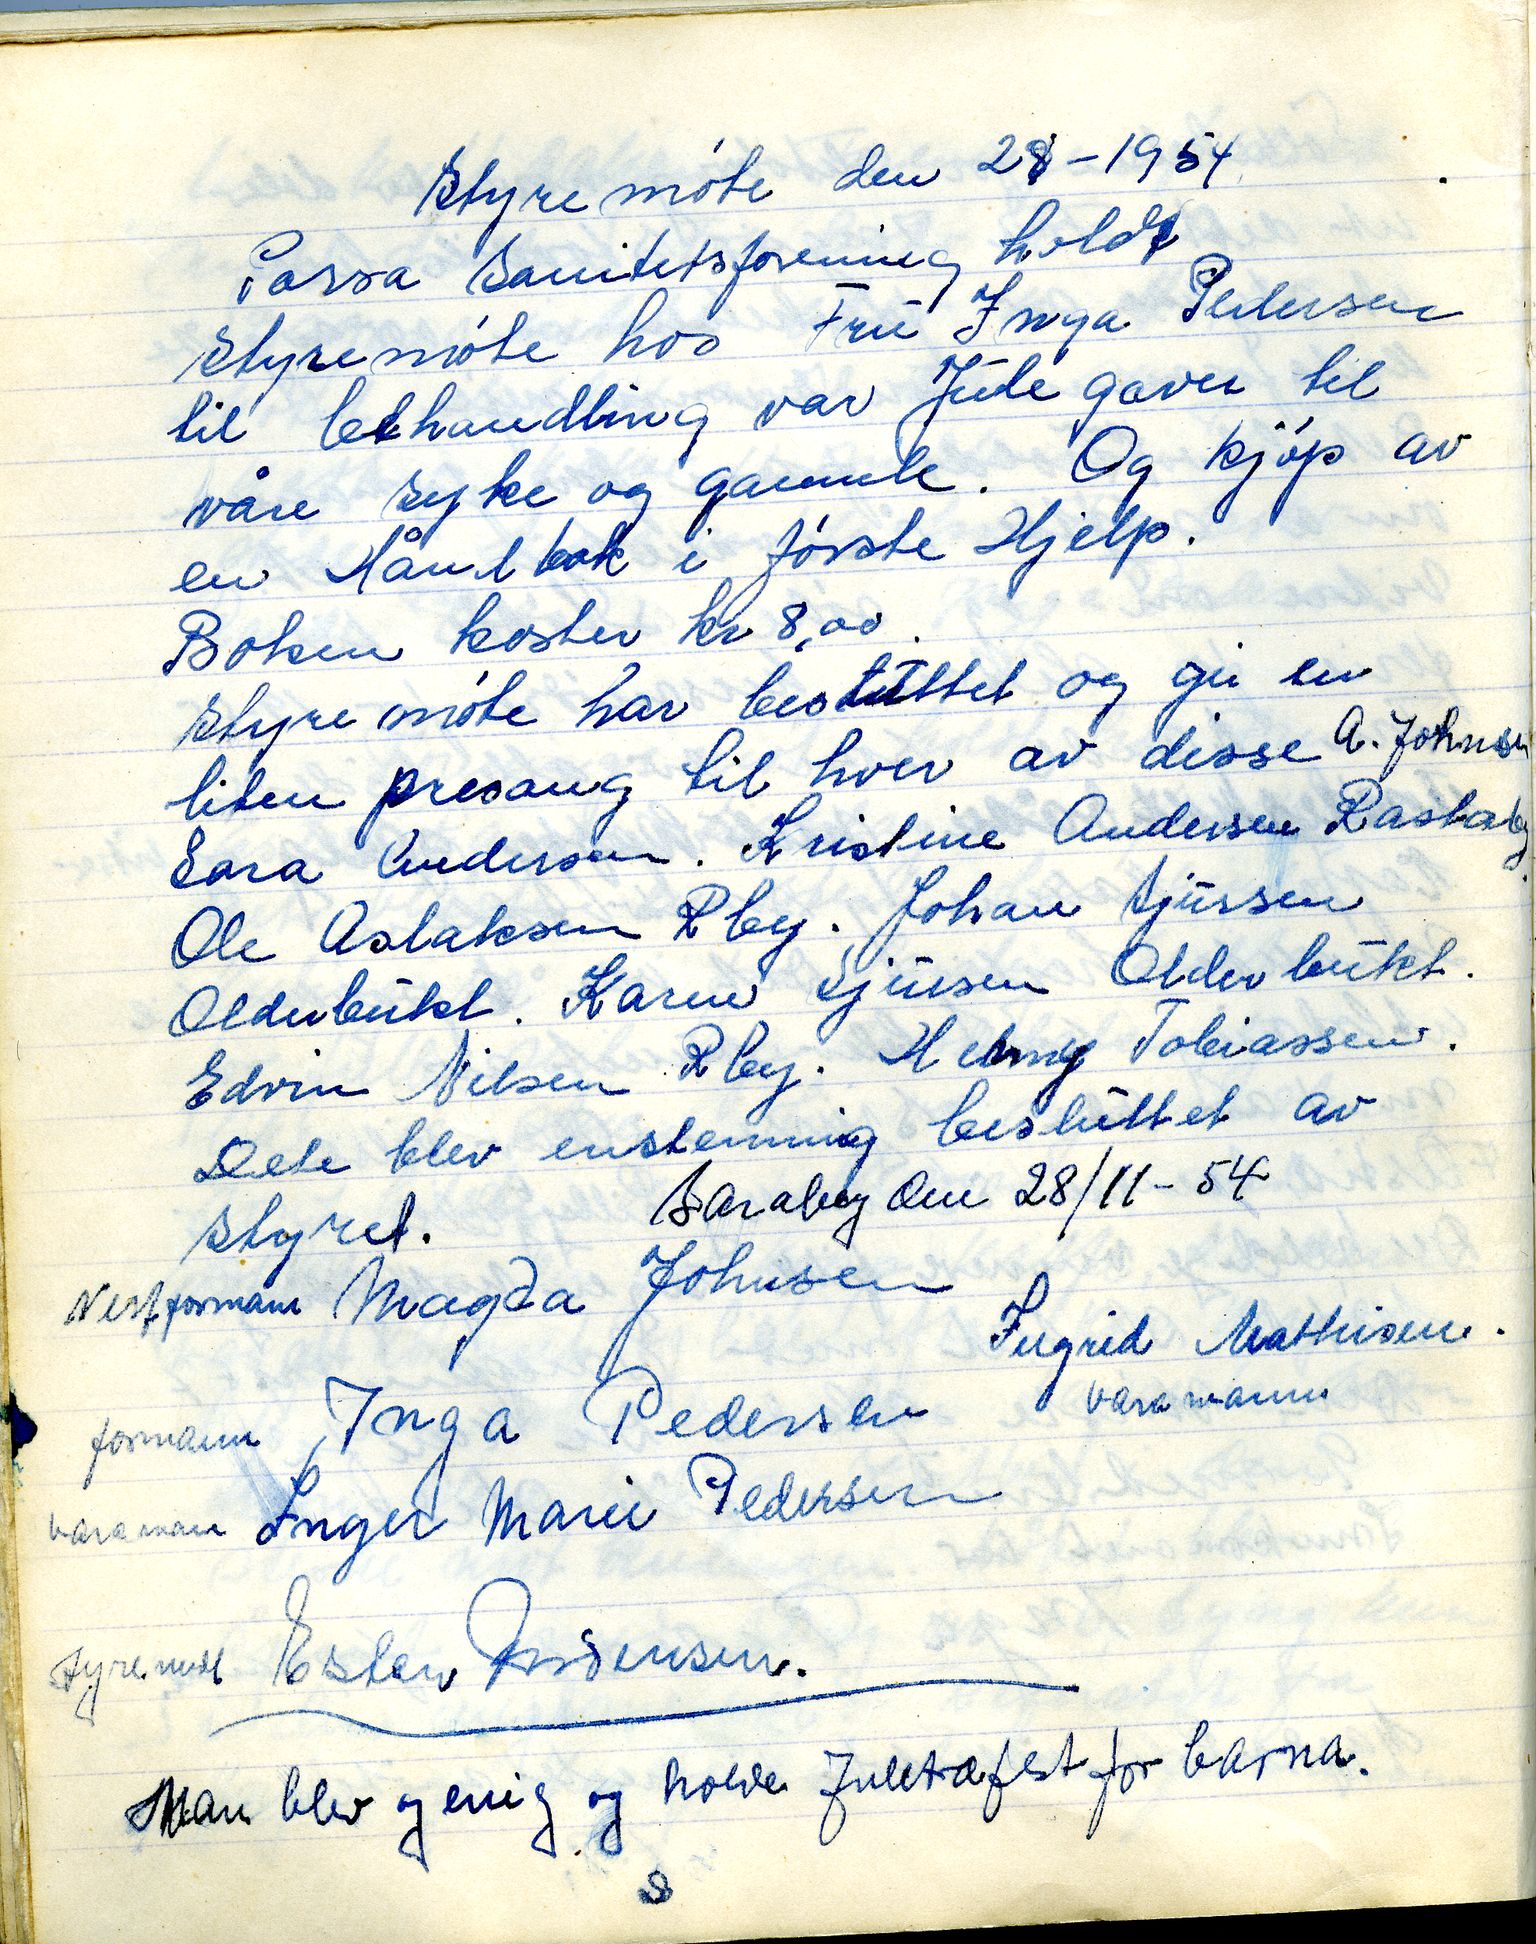 Styremöte den 28-1954
Porsa Sanitetsforening holdt
styremöte hos Fru Inga Pedersen
til behandling var Jule gaver til
våre syke og gamle. Og kjöp av
en Håndbok i förste Hjelp.
Boken koster kr 8,00.
styremöte har besluttet og gi en
liten presang til hver av disse A. Johnsen
Sara Andersen. Kristine Andersen Rastaby.
Ole Aslaksen Rby. Johan Sjursen
Olderbukt. Karen Sjursen Olderbukt.
Edvin Nilsen Rby. Helmy Tobiassen.
Dete blev enstemmig besluttet av
styret. Saraby den 28/11-54
Nestformann Magda Johnsen
Ingrid Mathisen.
varamann
formann Inga Pedersen
varaman Inger Marie Pedersen
styremedl Ester
Man blev og enig og holde Juletrefest for barna.